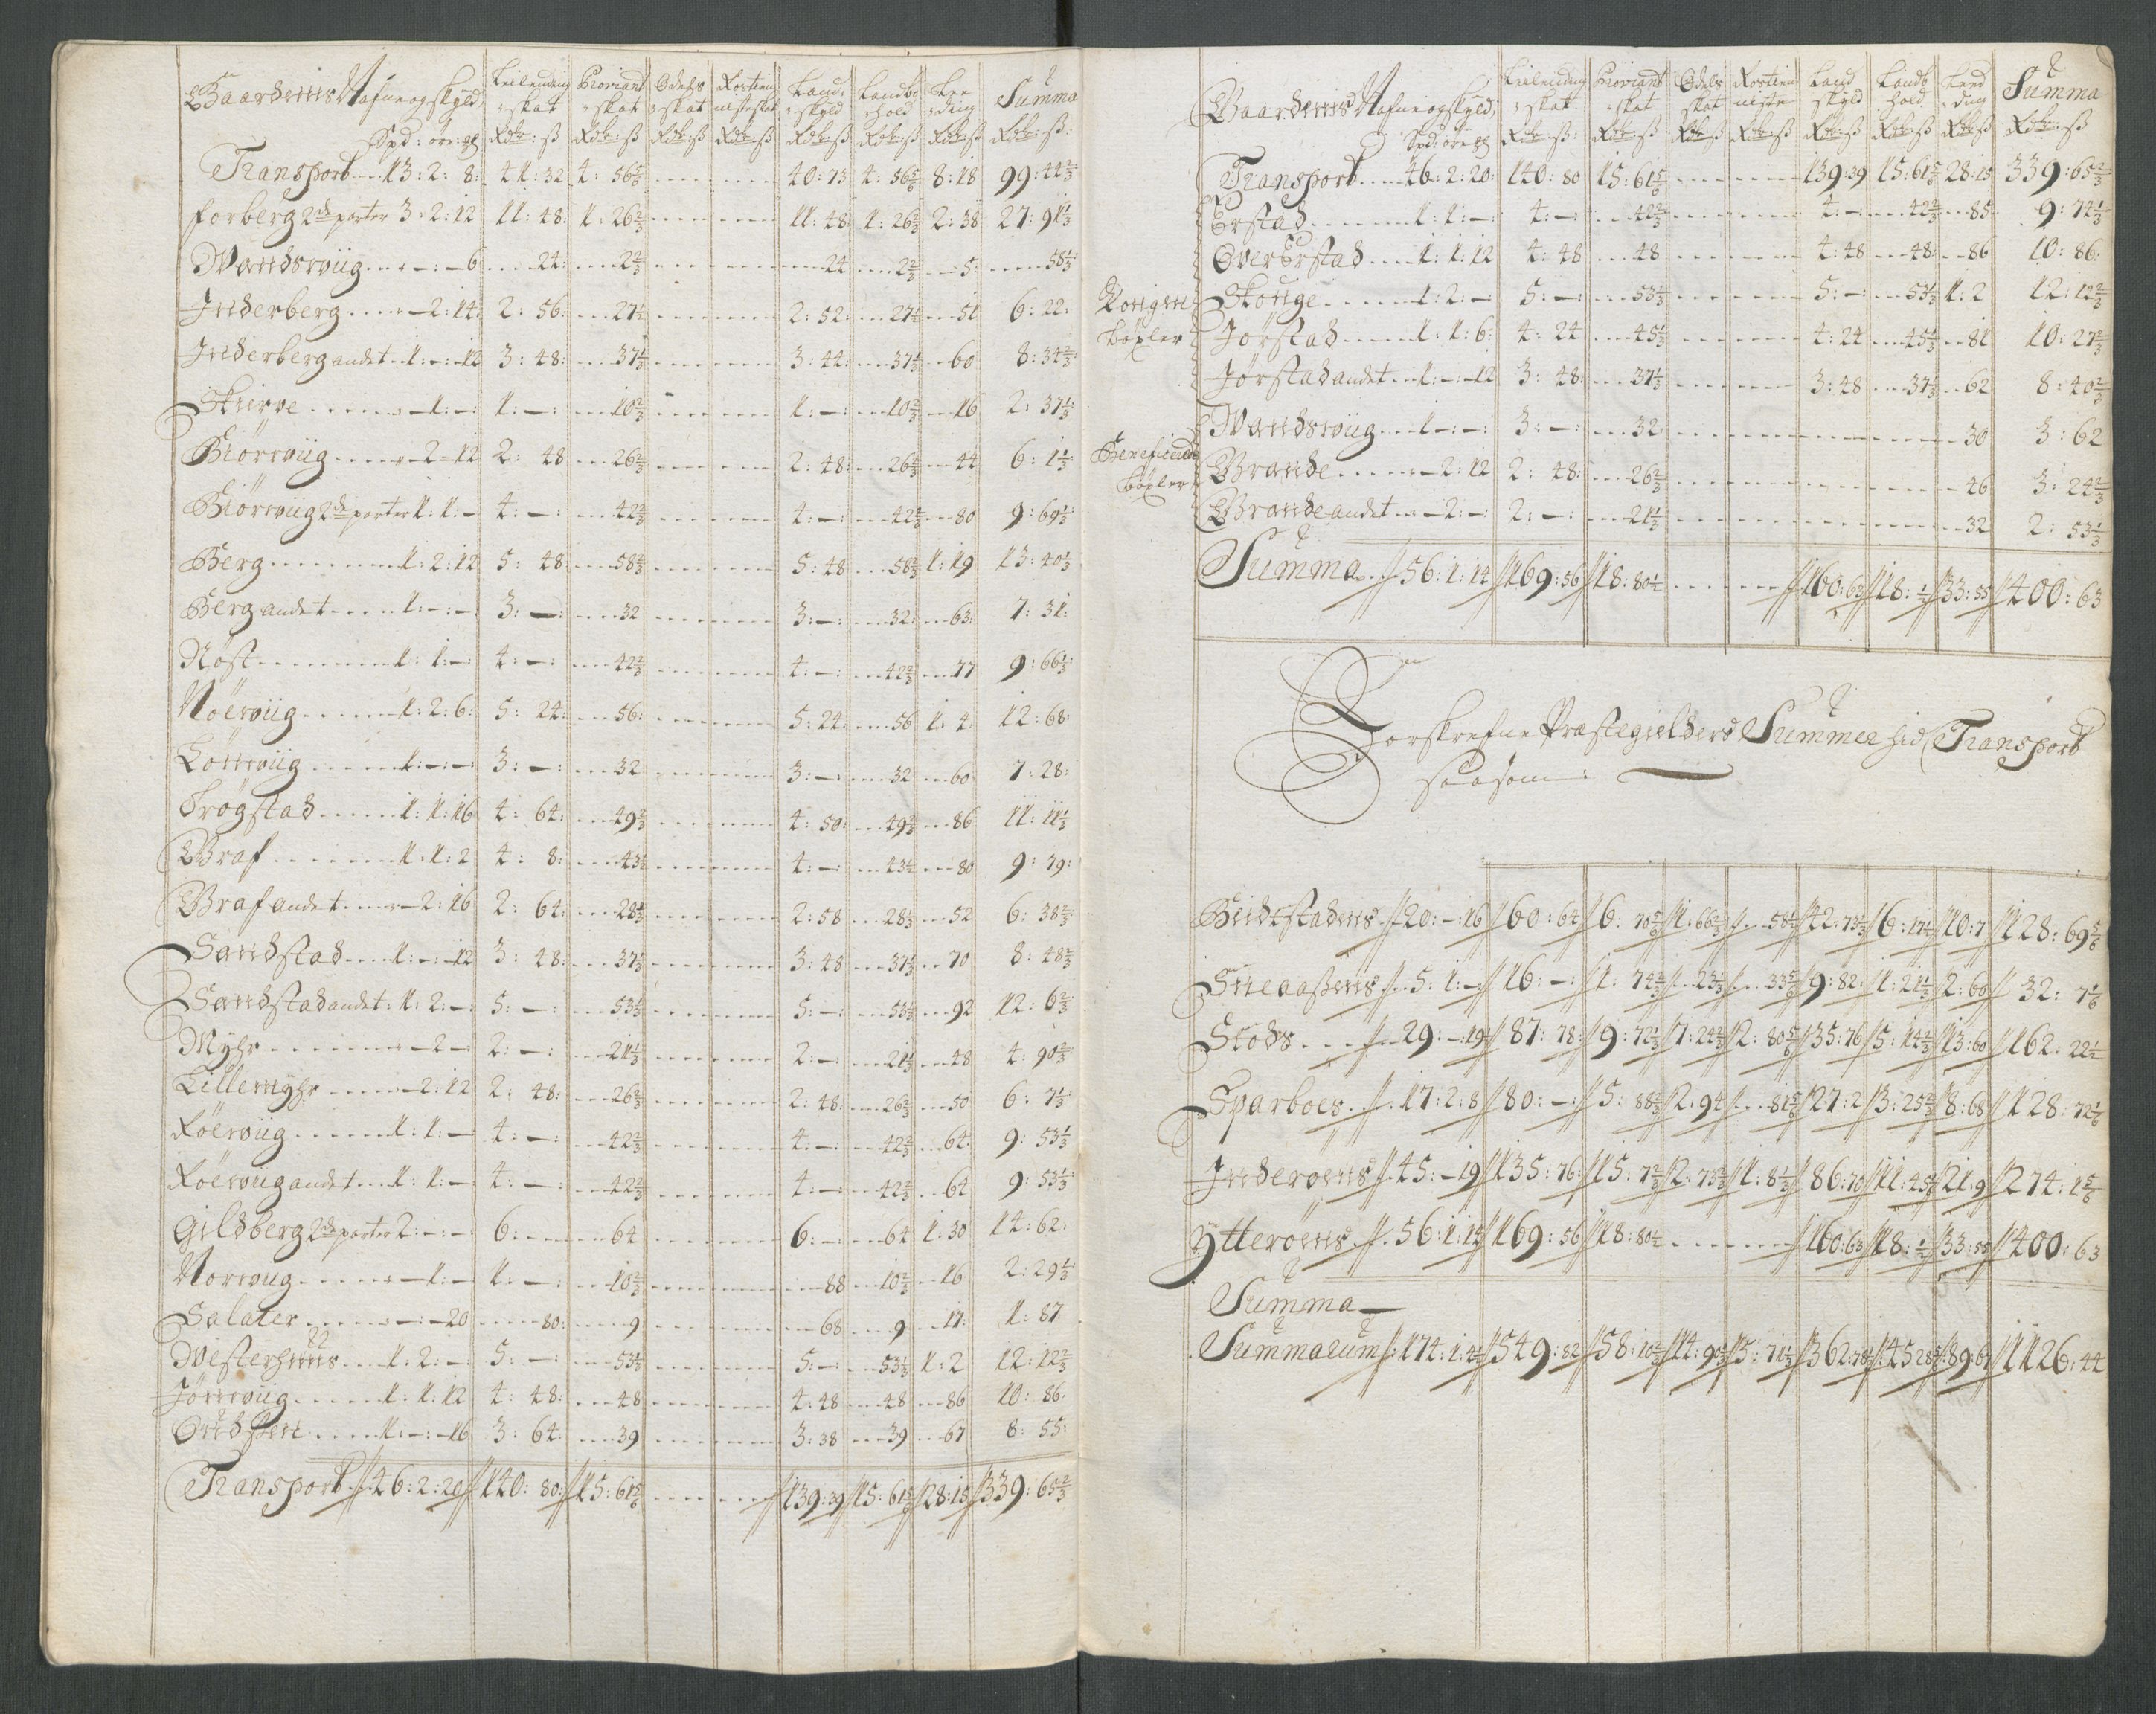 Gaardenis Nafne og Skyld, Leilending skat Proviant skat Odels skat Rostien neste skat Land skyld Landbo hold Lee ding Summa
Spd: øre: Rdr: ß Rdr: ß Rdr: ß Rdr: ß Rdr: ß Rdr: ß Rdr: ß Rdr: ß:
Transport 13: 2: 8: 41: 32 4: 56 5/6 40: 73 4: 56 5/6 8: 18 99: 44 2/3
Forberg 2de parter 3: 2: 12 11: 48: 1: 26 2/3 11: 48 1: 26 2/3 2: 38 27: 91 1/3
Wandsviig -: -: 6 24: 2 2/3 24 2 2/3 5: 58 1/3
Inderberg - 2: 14: 2: 56: 27 1/2 2: 52: 27 1/2 51 6: 22:
Inderberg andet 1: -: 12 3: 48: 37 1/3 3: 44: 37 1/3 60 8: 34 2/3
Skierve - 1: -: 1: -: 10 2/3 1: -: 10 2/3 16 2: 37 1/3
Biörviig - 2 - 12 2: 48 26 2/3 2: 48: 26 2/3 44 6: 1 1/3
Biörviig 2de parter 1: 1: - 4: -: 42 2/3 4: -: 42 2/3 80 9: 69 1/3
Berg 1: 2: 12 5: 48 58 2/3 5: 48 58 2/3 1: 19 13: 40 1/3
Berg andet 1: -: -: 3: -: 32 3: -: 32: 63: 7: 31:
Nöst 1: 1: -: 4: -: 42 2/3 4: -: 42 2/3 77 9: 66 1/3
Nöerviig 1: 2: 6: 5: 24: 56: 5: 24: 56 1: 4: 12: 68:
Lönviig 1: -: -: 3: -: 32 3: -: 32 60 7: 28:
Trögstad 1: 1: 16 4: 64: 49 2/3 4: 50: 49 2/3 86 11: 11 1/3
Graf 1: 1: 2 4: 8: 43 1/2 4: -: 43 1/2 80 9: 79:
Graf andet - 2: 16 2: 64: 28 1/3 2: 58 28 1/3 52 6: 38 2/3
Sandstad 1: -: 12 3: 48: 37 1/3 3: 48 37 1/3 70 8: 48 2/3
Sandstad andet: 1: 2: -: 5: -: 53 1/3 5: -: 53 1/3 92 12: 6 2/3
Myhr - 2 -: 2: -: 21 1/3 2: -: 21 1/3 48 4: 90 2/3
Lillemyhr - 2: 12 2: 48: 26 2/3 2: 48: 26 2/3 50 6: 7 1/3
Röerviig 1: 1: - 4: -: 42 2/3 4: -: 42 2/3 64: 9: 53 1/3
Röerviig andet 1: 1: - 4: -: 42 2/3 4: -: 42 2/3 64 9: 53 1/3
Gildberg 2de parter 2: -: - 6: 64 6: -: 64 1: 30 14: 62:
Norviig - 1: - 1: -: 10 2/3 88 10 2/3 16 2: 29 1/3
Salater -: -: 20 80: 9 68 9 17: 1: 87
Westerhuus 1: 2: -: 5: -: 53 1/3 5: -: 53 1/3 1: 2 12: 12 2/3
Jönviig 1: 1: 12 4: 48: 48 4: 48 48 86 10: 86:
1: -: 16 3: 64: 39 3: 38 39 67 8: 55:
Transport 46: 2: 20 140: 80: 15: 61 5/6 139: 39 15: 61 5/6 28: 15 339: 65 2/3
Gaardenis Nafne og Skyld, Leilending skat Proviant skat Odels skat Rostien neste Land skyld Landb hold Leed ding Summa
Spd: øre Rdr: ß: Rdr: ß Rdr: ß Rdr: ß Rdr: ß Rdr: ß Rdr: ß Rdr: ß
Transport 46: 2: 20: 140: 80 15: 61 5/6 139: 39 15: 61 5/6 28: 15 339: 65 2/3
Erstad 1: 1: -: 4: -: 42 2/3 4: -: 42 2/3 85 9: 74 1/3
Over Erstad 1: 1: 12 4: 48 48 4: 48 48: 86 10: 86:
Kongen böxler
Skouge 1: 2: -: 5: -: 53 1/3 5: -: 53 1/3 1: 2 12: 12 2/3
Jörstad 1: 1: 6: 4: 24 45 1/3 4: 24 45 1/3 81 10: 27 2/3
Jörstad andet 1: -: 12 3: 48: 37 1/3 3: 48 37 1/3 62 8: 40 2/3
Wandsviig 1 -: -: 3: -: 32: 30 3: 62
Beneficerede böxler
Grande - 2: 12 2: 48: 26 2/3 46 3: 24 2/3
Grande andet - 2: -: 2: -: 21 1/3 32 2: 53 1/3
Summa 56: 1: 14 169: 56 18: 80 1/2 160: 63 18: 1/2 33: 55 400: 63
Forskrefne Præstegielders Summer hid Transport
saasom:
Biidstadens 20: - 16 60: 64 6: 70 5/6 1: 66 2/3 58 1/2 42: 73 1/3 6: 17 1/2 10: 7 128: 69 5/6
Sneaaßens 5: 1: -: 16: -: 1: 74 2/3 23 1/3 33 5/6 9: 82: 1: 21 1/3 2: 60 32: 7 1/6
Stods 29: - 19: 87: 78: 9: 72 1/3 7: 24 2/3 2: 80 5/6 35: 76 5: 14 2/3 13: 60 162: 22 1/2
Sparboes 17: 2: 8 80: -: 5: 88 2/3 2: 94 81 5/6 27: 2 3: 25 2/3 8: 68 128: 72 1/6
Inderöens 45: - 19 135: 76: 15: 7 2/3 2: 73 2/3 1: 8 1/3 86: 70 11: 45 5/6 21: 9 274: 1 5/6
Ytteröens 56: 1: 14 169: 56 18: 80 1/2 160: 63 18: 1/2 33: 55 400: 63
Summa
Summarum 174: 1: 4 549: 82 58: 10 2/3 14: 90 1/3 5: 71 1/3 362: 78 45 28 5/6 89: 67 1126: 44